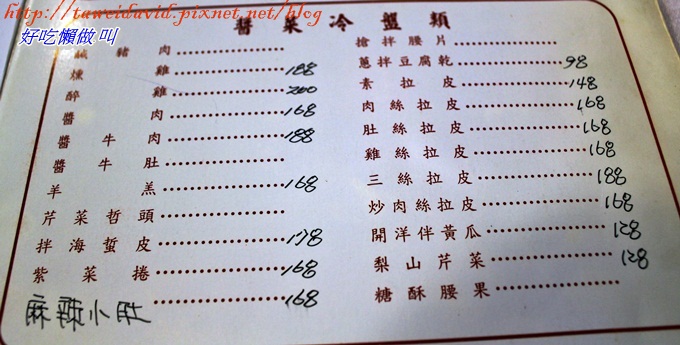 http://taweidavid.pixnet.net/blog
好吃懶做 叫
醬菜冷盤類
鹹豬肉
燻雞 188
醉雞 200
醬肉 168
醬牛肉 188
醬牛肚
羊羔 168
芹菜哲頭
拌海蜇皮 178
紫菜捲 168
麻辣小肚 168
搶拌腰片
蔥拌豆腐乾 98
素拉皮 148
肉絲拉皮 168
肚絲拉皮 168
雞絲拉皮 168
三絲拉皮 188
炒肉絲拉皮 168
開洋伴黃瓜 128
梨山芹菜 128
糖酥腰果